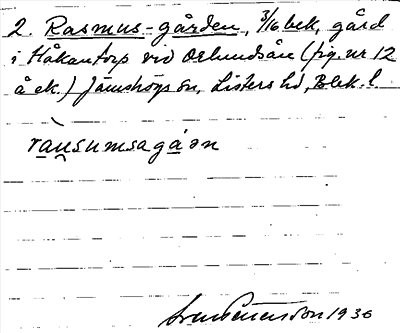 2. Rasmus-gården, 3/16 bek, gård
i Håkantorp vid Orlundsån (fig. nr 12
å ek.) Jämshögs sn, Listers hd, Blek. l.
ràu̯sumsagá̱ən
Sven Petersson 1936